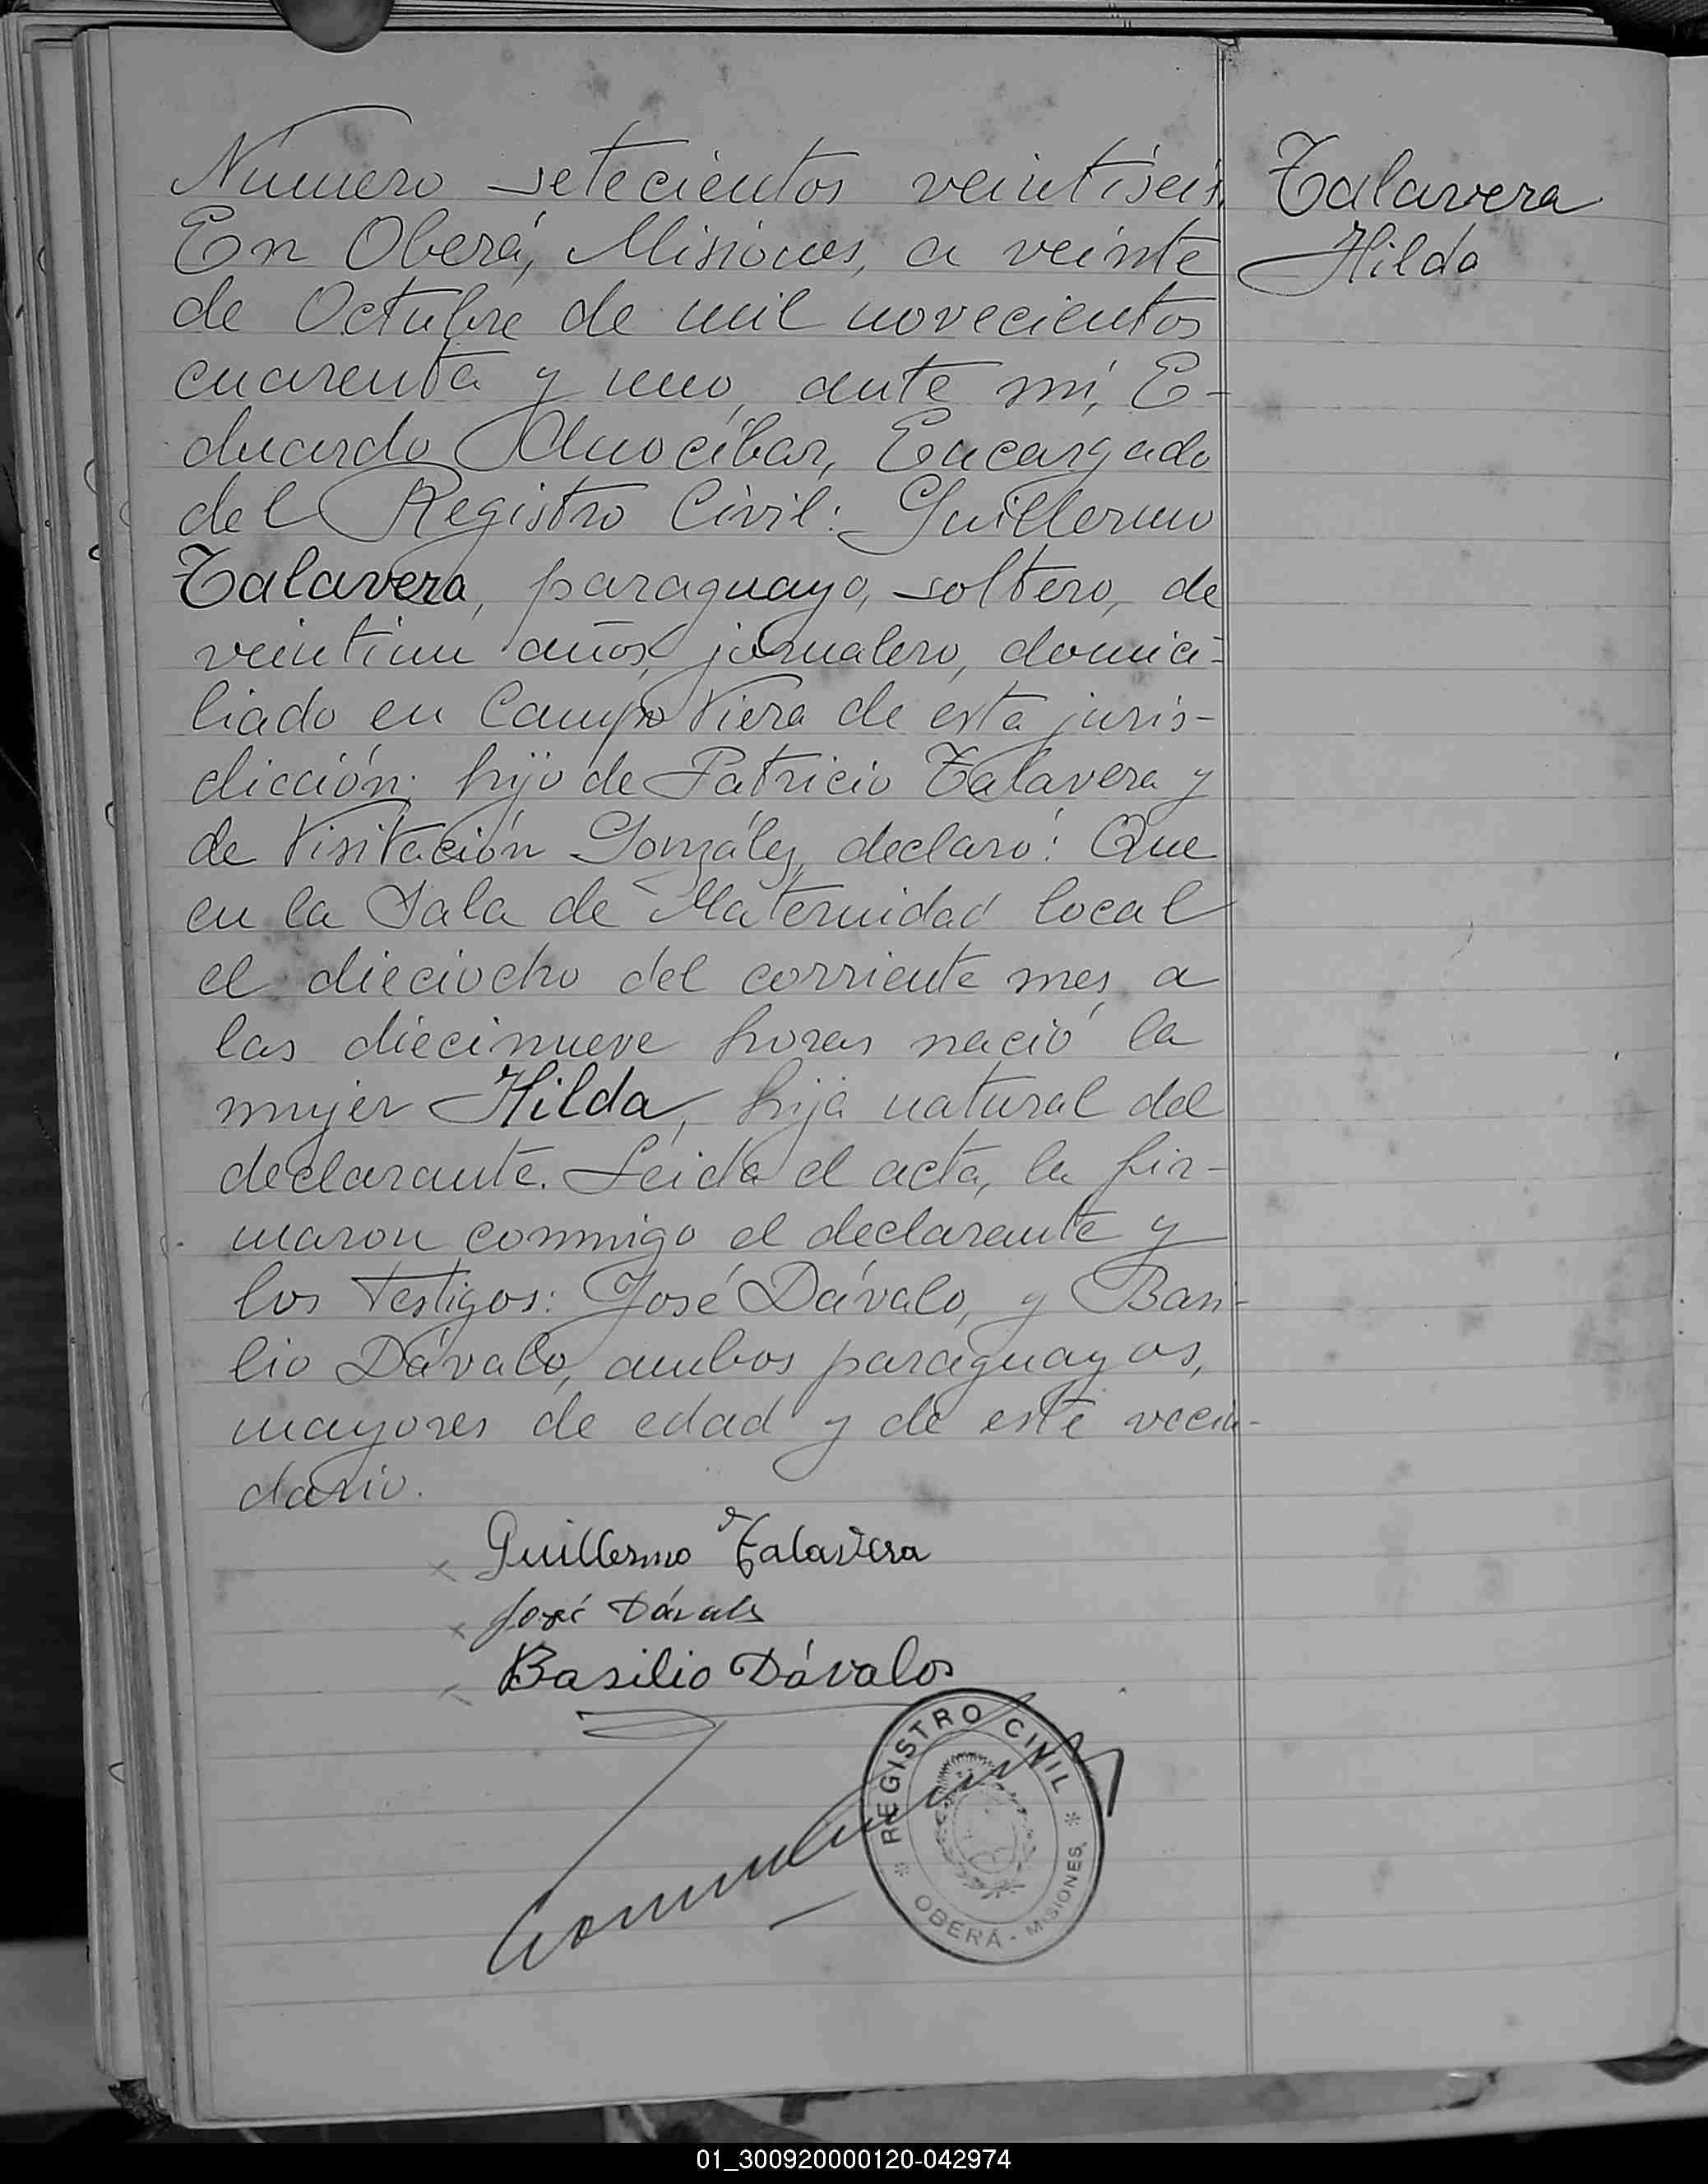 Número setecientos veintiseis.
En Oberá, Misiones, a veinte
de Octubre de mil novecientos
cuarenta y uno, ante mí, E-
duardo Anocíbar, Encargado
del Registro Civil: Guillermo
Talavera, paraguayo, soltero, de
veintiun años, jornalero, domici-
liado en Campo Viera de esta juris-
dicción; hijo de Patricio Talavera y
de Visitación González, declaró: Que
en la Sala de Maternidad local
el dieciocho del corriente mes, a
las diecinueve horas nació la
mujer Hilda, hija natural del
declarante. Leida el acta, la fir-
maron conmigo el declarante y
los testigos: José Dávalo, y Basi-
lio Dávalo, ambos paraguayos,
mayores de edad y de este vecin-
dario.
Talavera
Hilda
Guillermo Talavera
José Dávalo
Basilio Dávalos
REGISTRO CIVIL
OBERÁ - MISIONES
01_300920000120-042974